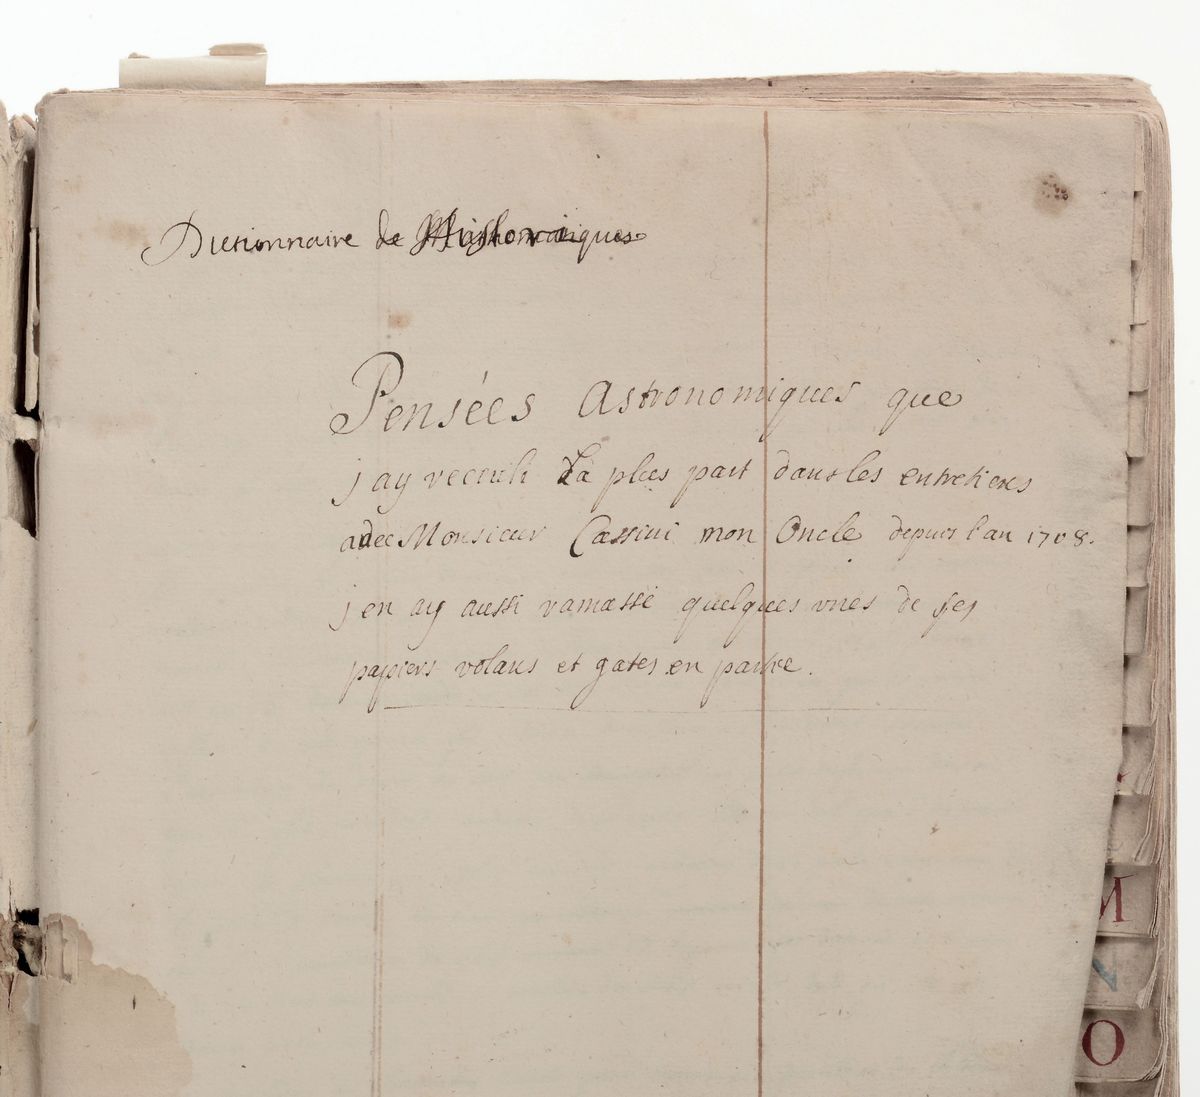 Dictionnaire de
Pensées Astronomiques que
j ay receuli La plus part dans les entretiens
avec Monsieur Cassini mon Oncle depuis l'an 1708.
j en ay aussi ramassé quelques unes de ses
papiers volans et gates en partie.
M
N
O